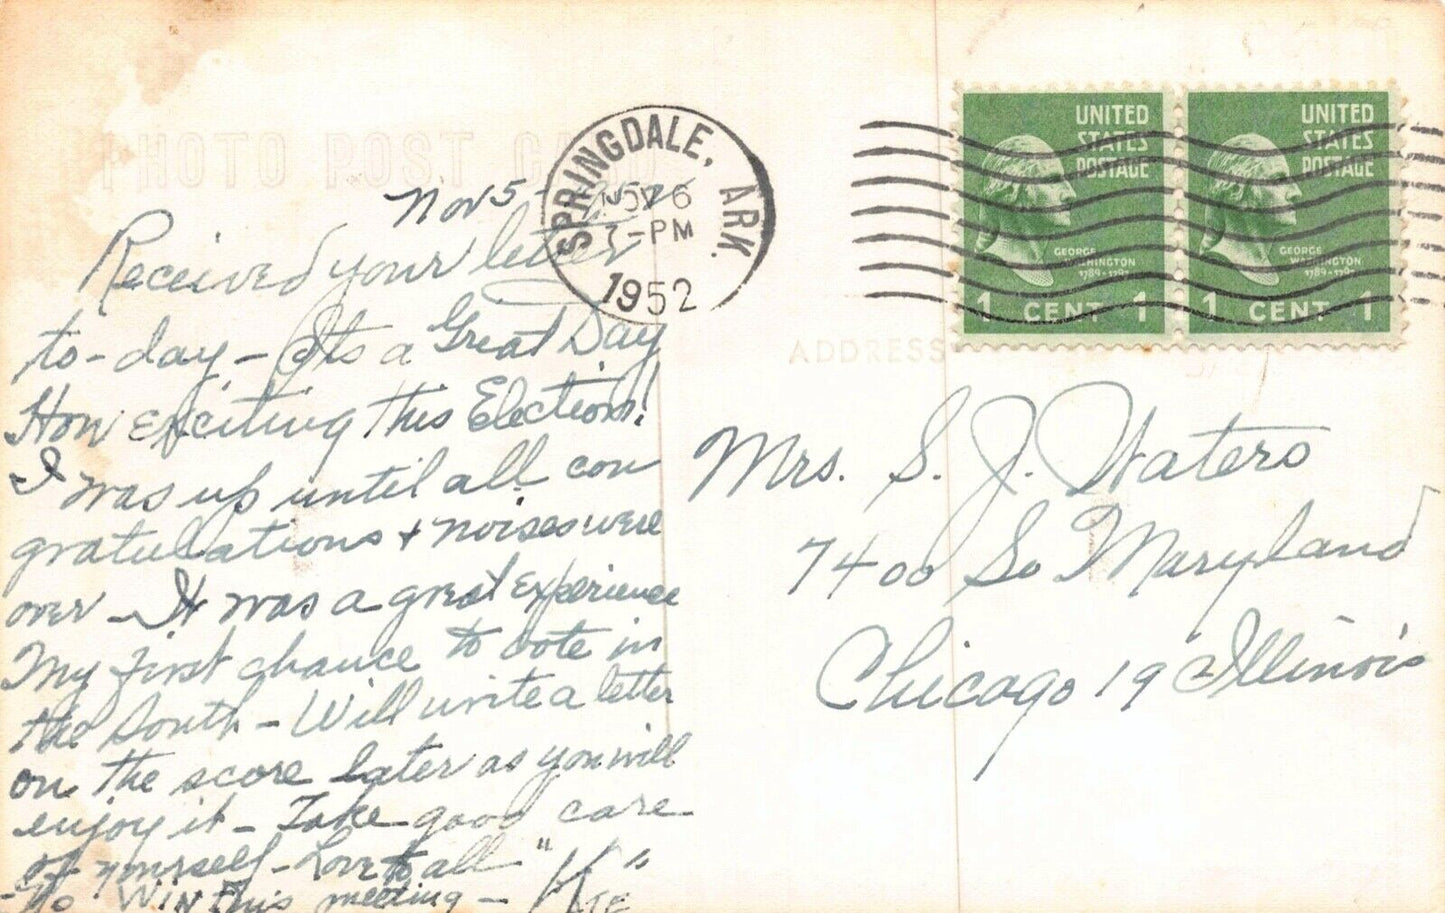 PHOTO POST CARD
Nov 5-
Received your letter
to-day - Its a Great Day
How exciting this Election!
I was up until all con
gratulations + noises were
over - It was a great experience
My first chance to vote in
the South - Will write a letter
on the score later as you will
enjoy it - Take good care
of yourself - Love to all
- No Win this meeting -
SPRINGDALE, ARK.
NOV 6
7-PM
1952
UNITED STATES POSTAGE
GEORGE WASHINGTON
1789-1797
1 CENT 1
UNITED STATES POSTAGE
GEORGE WASHINGTON
1789-1797
1 CENT 1
ADDRESS
Mrs. S. J. Waters
7400 So Maryland
Chicago 19 Illinois